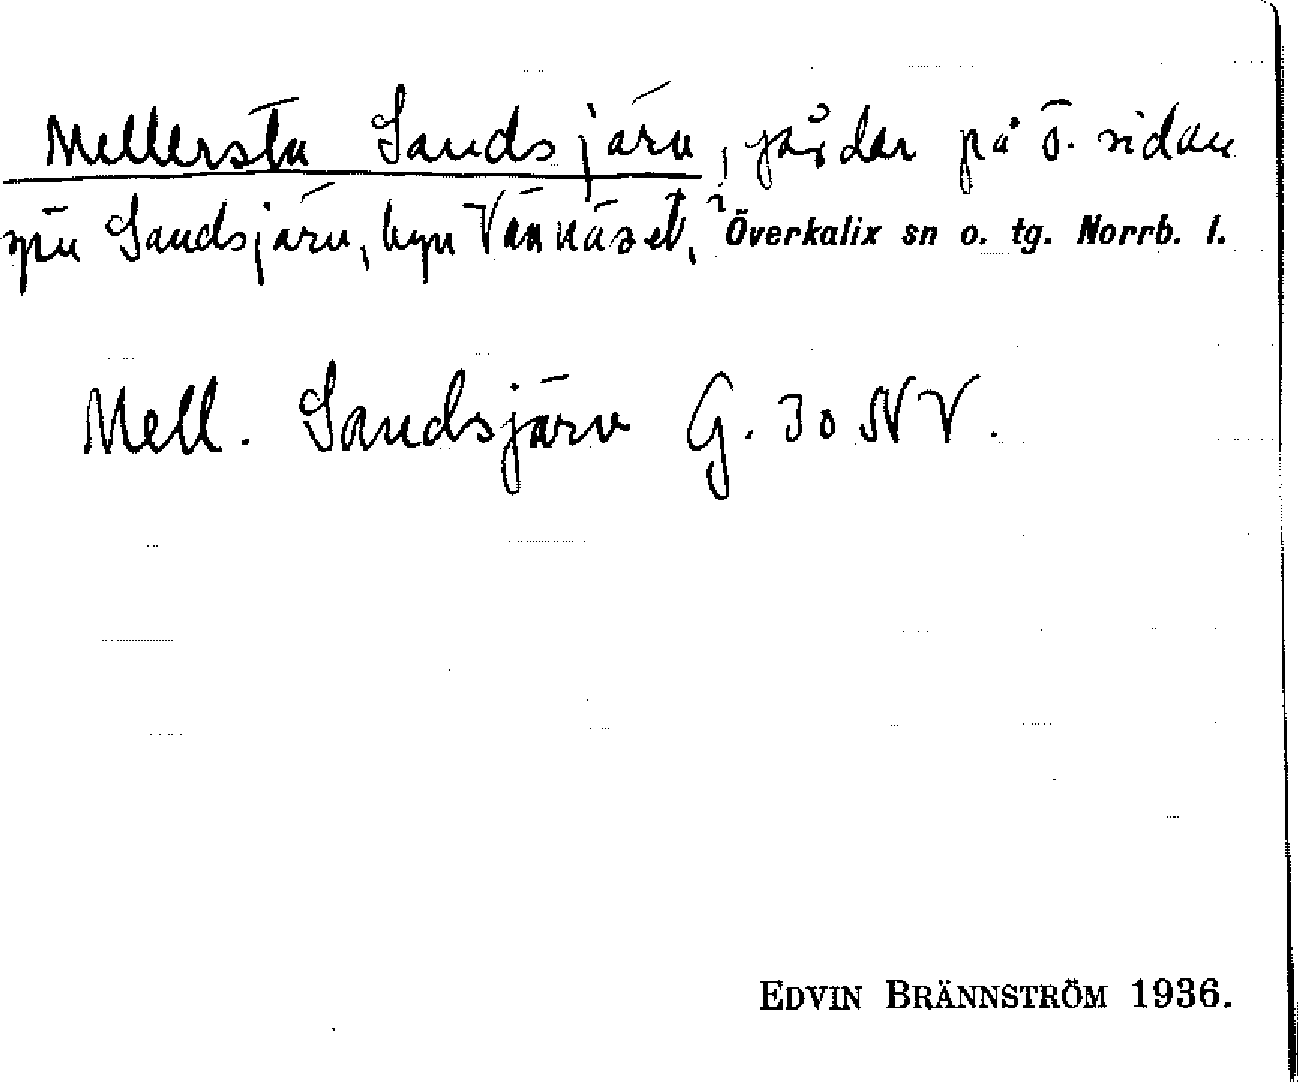 Mellersta Sandsjärv, gårdar på ö. sidan
sjön Sandsjärv, byn Vännäset, i Överkalix sn o. tg. Norrb. l.
Mell. Sandsjärv G. 30 NV.
EDVIN BRÄNNSTRÖM 1936.